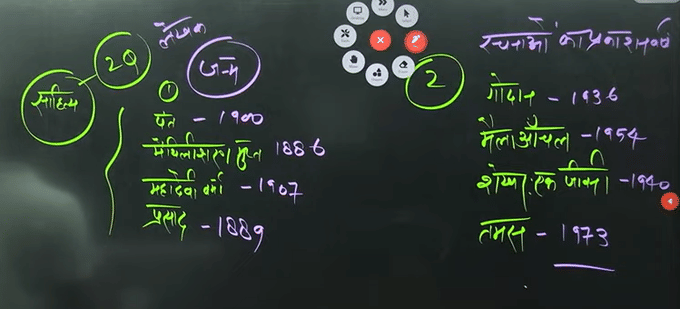 लेखक
साहित्य
20
जन्म
①
पंत - 1900
मैथिलीशरण गुप्त 1886
महादेवी वर्मा - 1907
प्रसाद - 1889
रचनाओं का प्रकाशन वर्ष
2
गोदान - 1936
मैला आँचल - 1954
शेखर: एक जीवनी - 1940
तमस - 1973